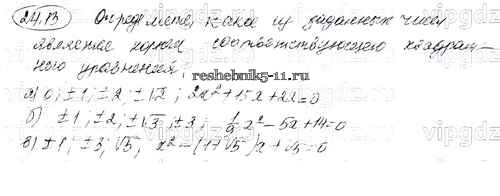 24.13 Определите, какое из заданных чисел
является корнем соответствующего квадрат-
ного уравнения:
reshebnik5-11.ru
а) 0; ±1; ±2; ±√2; 2x²+15x+22=0
б) ±1; ±2; ±√3; ±3; x²-5x+14=0
в) ±1; ±3; √5; x²-(1+√5)x+√5=0
vipgdz